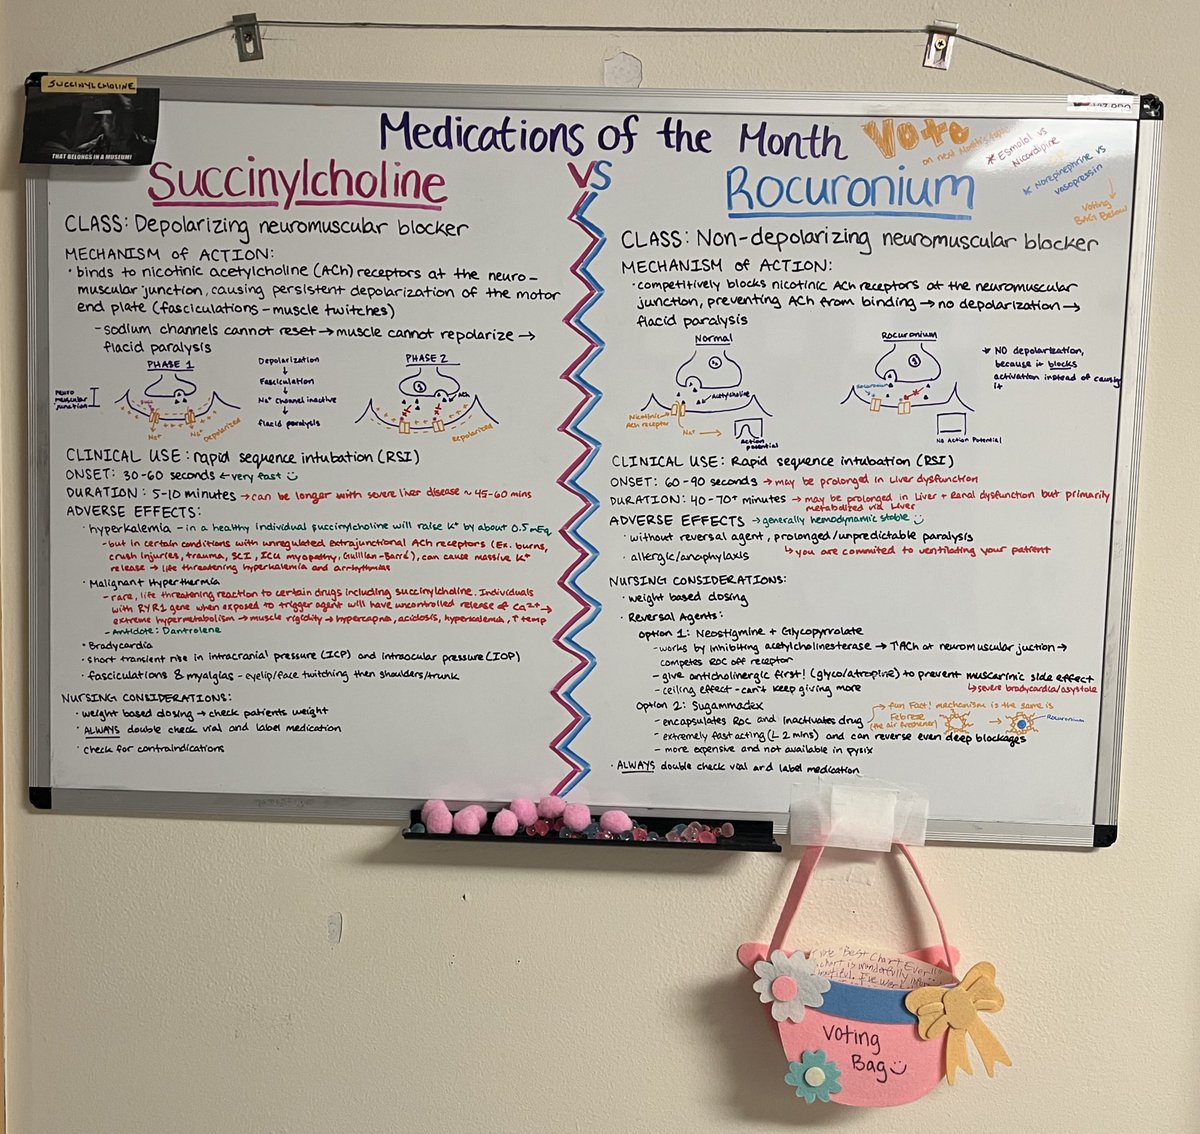 SUCCINYLCHOLINE
THAT BELONGS IN A MUSEUM!
Medications of the Month
Vote
on new Month's
* Esmolol vs
Nicardipine
* Norepinephrine vs
vasopressin
Voting
BAG! Below
Succinylcholine
VS
Rocuronium
CLASS: Depolarizing neuromuscular blocker
MECHANISM of ACTION:
• binds to nicotinic acetylcholine (ACh) receptors at the neuro-
muscular junction, causing persistent depolarization of the motor
end plate (fasciculations - muscle twitches)
- sodium channels cannot reset → muscle cannot repolarize →
flacid paralysis
PHASE 1
neuro
muscular
junction
Na+
Na+
Depolarized
Depolarization
↓
Fasciculation
↓
Na+ Channel inactive
↓
flacid paralysis
PHASE 2
ACh
Repolarized
CLINICAL USE: rapid sequence intubation (RSI)
ONSET: 30-60 seconds ← very fast
DURATION: 5-10 minutes → can be longer with severe liver disease ~ 45-60 mins
ADVERSE EFFECTS:
• hyperkalemia - in a healthy individual succinylcholine will raise K+ by about 0.5 mEq
- but in certain conditions with unregulated extrajunctional ACh receptors (Ex. burns,
crush injuries, trauma, SCI, ICU myopathy, Guillian-Barré), can cause massive K+
release → life threatening hyperkalemia and arrhythmias
• Malignant Hyperthermia
- rare, life threatening reaction to certain drugs including succinylcholine. Individuals
with RYR1 gene when exposed to trigger agent will have uncontrolled release of Ca2+ →
extreme hypermetabolism → muscle rigidity → hypercapnia, acidosis, hyperkalemia, ↑ temp
- Antidote: Dantrolene
• Bradycardia
• short transient rise in intracranial pressure (ICP) and intraocular pressure (IOP)
• fasciculations & myalgias - eyelip/face twitching then shoulders/trunk
NURSING CONSIDERATIONS:
• weight based dosing → check patients weight
• ALWAYS double check vial and label medication
• check for contraindications
CLASS: Non-depolarizing neuromuscular blocker
MECHANISM of ACTION:
• competitively blocks nicotinic ACh receptors at the neuromuscular
junction, preventing ACh from binding → no depolarization →
flacid paralysis
Normal
Acetylcholine
Nicotinic
ACh receptor
Na+ →
Action
potential
Rocuronium
Rocuronium
No Action Potential
* NO depolarization,
because it blocks
activation instead of causing
it
CLINICAL USE: Rapid sequence intubation (RSI)
ONSET: 60-90 seconds → may be prolonged in Liver dysfunction
DURATION: 40-70+ minutes → may be prolonged in Liver + Renal dysfunction but primarily
metabolized via Liver
ADVERSE EFFECTS → generally hemodynamic stable
• without reversal agent, prolonged/unpredictable paralysis
↳ you are commited to ventilating your patient
• allergic/anaphylaxis
NURSING CONSIDERATIONS:
• weight based dosing
• Reversal Agents:
option 1: Neostigmine + Glycopyrrolate
- works by inhibiting acetylcholinesterase → ↑ACh at neuromuscular juction →
competes ROC off receptor
- give anticholinergic first! (glyco/atropine) to prevent muscarinic side effect
↳ severe bradycardia/asystole
- ceiling effect - can't keep giving more
Option 2: Sugammadex
- encapsulates Roc and inactivates drug
fun Fact! mechanism is the same is
Febreze
(the air freshener)
Rocuronium
- extremely fast acting (∠ 2 mins) and can reverse even deep blockages
- more expensive and not available in pysix
• ALWAYS double check vial and label medication
vote "Best Chart Ever!!"
chart is wonderfully
Voting
Bag